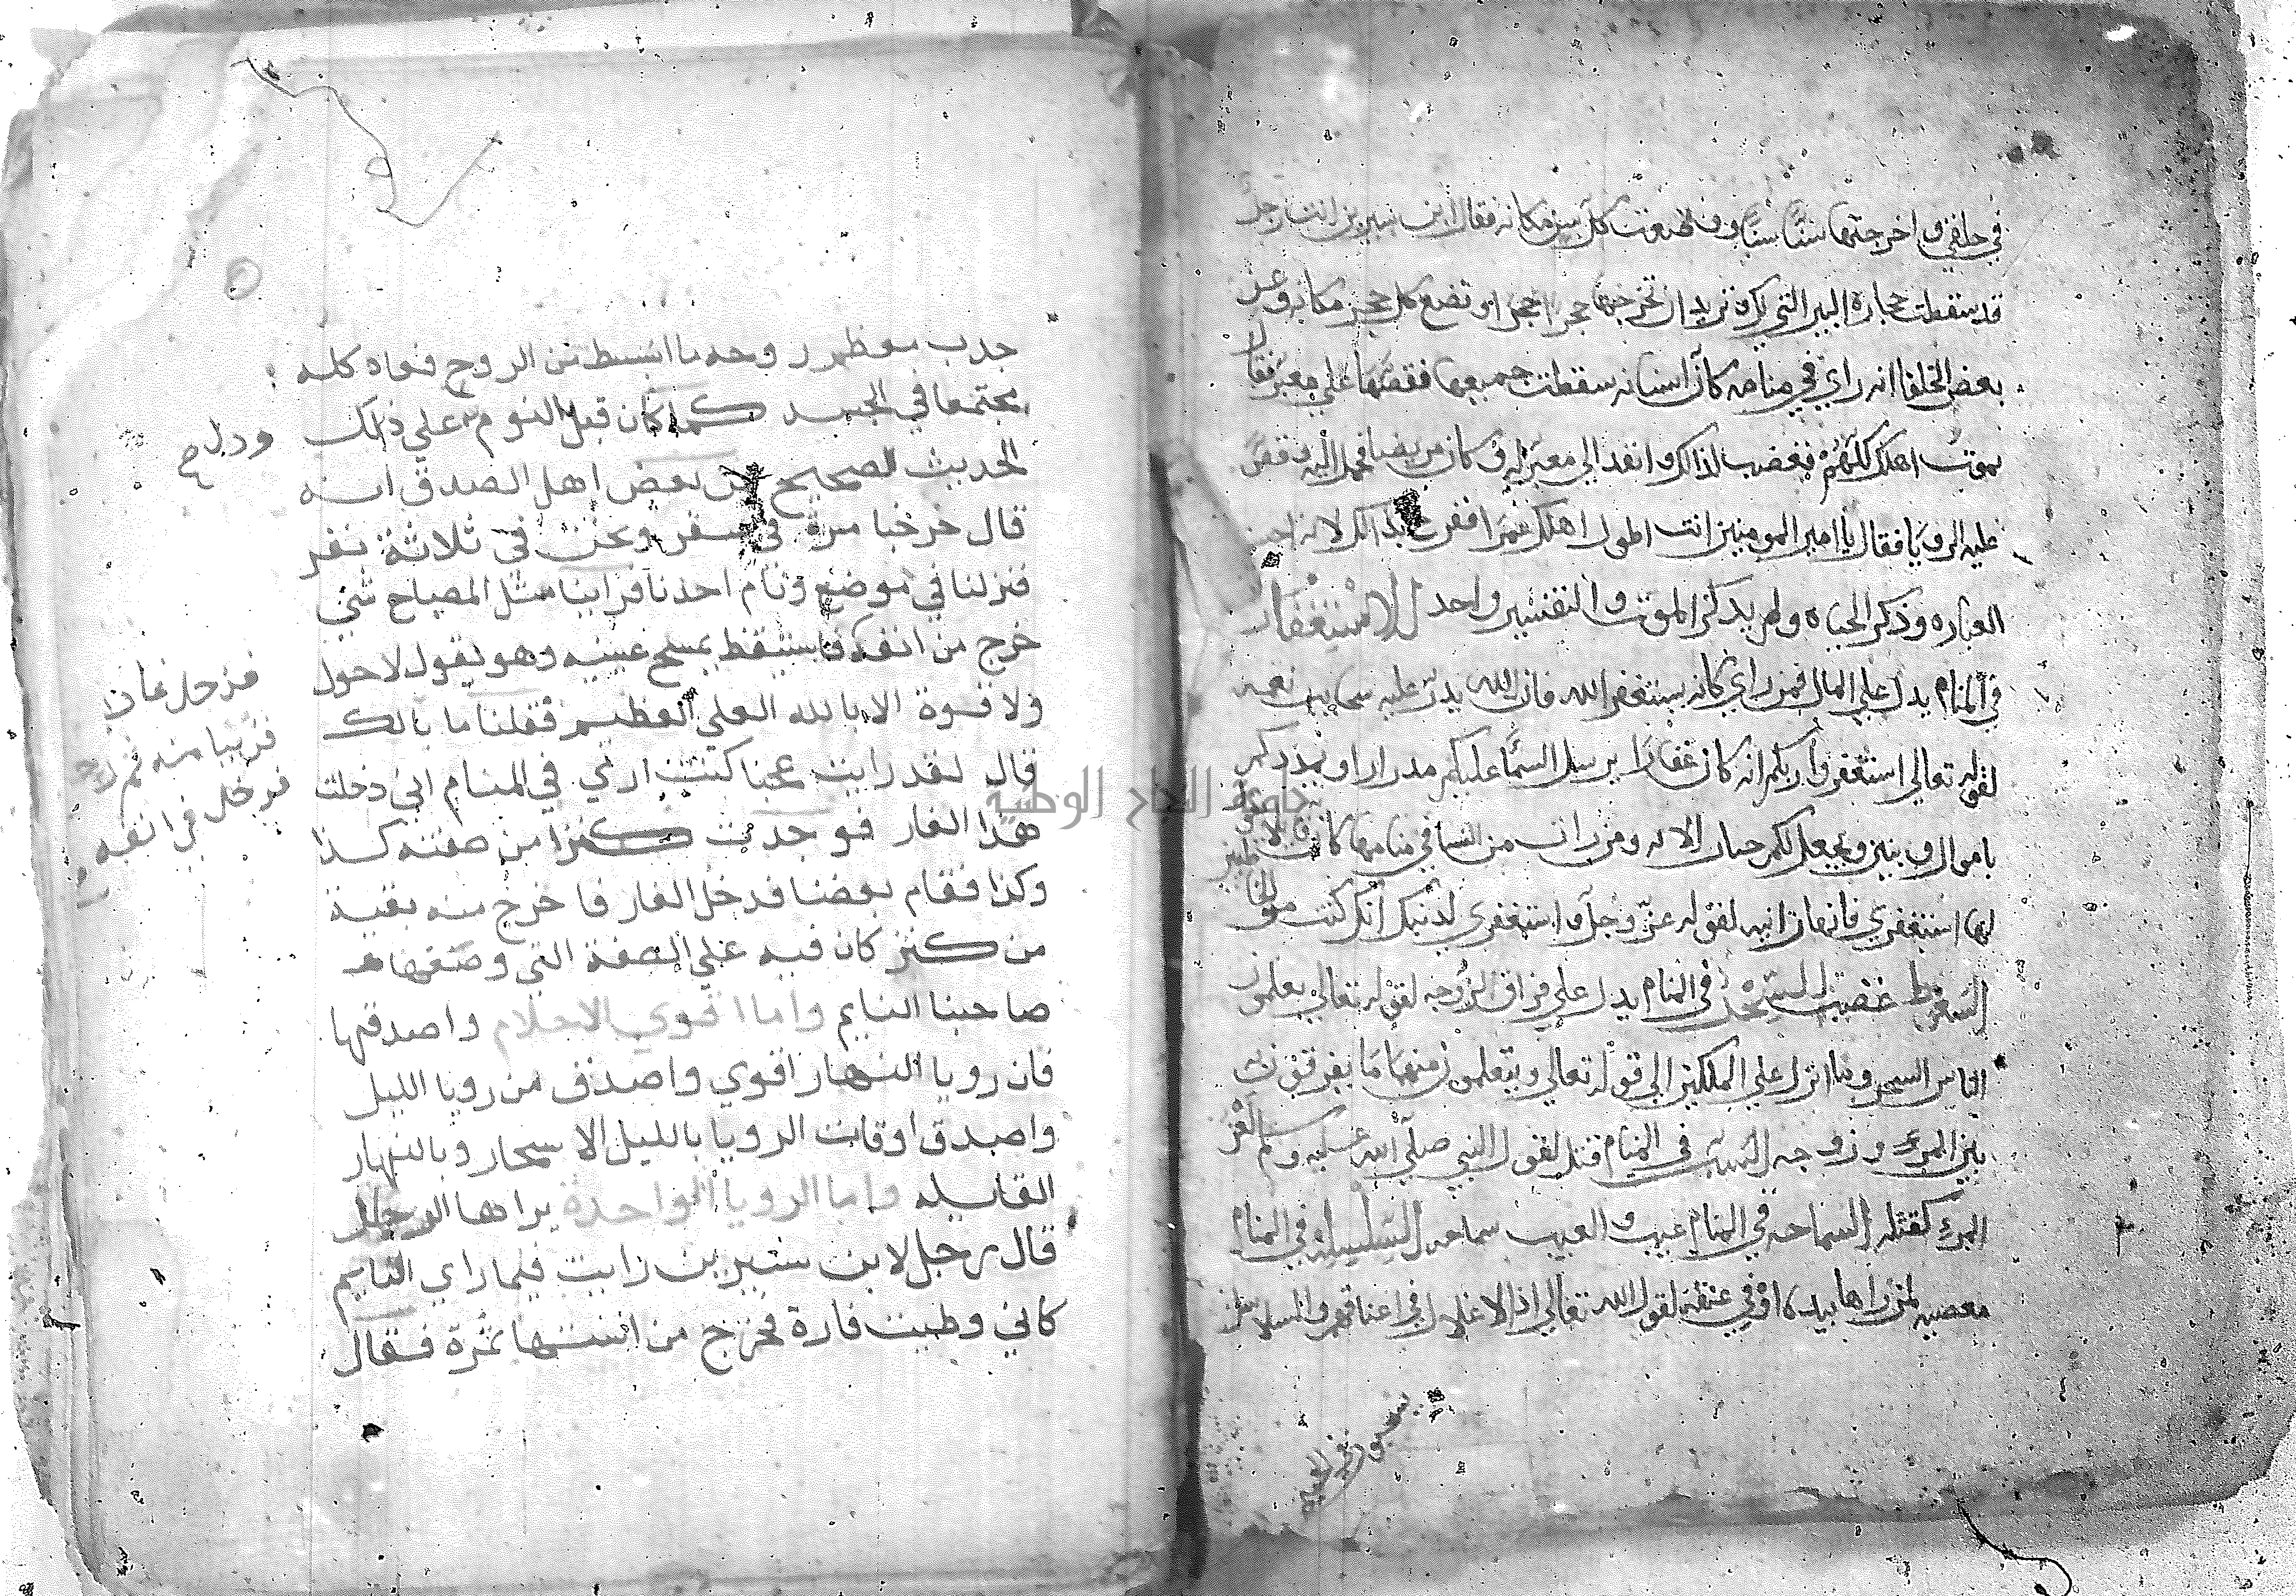 في حلقي واخرجتها سنا سنا وفلا صوت كل سن مكانه فقال ابن سيرين انت رجل
قد سقطت حجارة البير التي لك تريد ان تخرجها حجرا حجرا وتضع كل حجر مكانه وعن
بعض الخلفا انه راي في منامه كان اسنانه سقطت جميعها فقصها علي معبر فقال
يموت اهلك كلهم فغضب لذالك وانفد الي معبر له كان مريضا فحمل اليه وقص
عليه الرويا فقال يا امير المومنين انت اطول اهلك عمرا ففرح بذالك لانه احسن
العباره وذكر الحياه ولم يدكر الموت والتفسير واحد الاستغفار
في المنام يدل علي المال فمن راي كانه يستغفر الله فان الله يدر عليه سحايب نعمه
لقوله تعالي استغفروا ربكم انه كان غفارا يرسل السما عليكم مدرارا ويمددكم
باموال وبنين ويجعل لكم جنات الايه ومن رات من النسا في منامها كان قايلا يقول
لها استغفري فانها زانيه لقوله عز وجل واستغفري لدنبك انك كنت من الخاطيين
السقوط غضب السحر في المنام يدل علي فراق الزوجه لقوله تعالي يعلمون
الناس السحر وما انزل علي الملكين الي قوله تعالي ويتعلمون منهما ما يفرقون به
بين المرء وزوجه السب في المنام قتل لقول النبي صلي الله عليه وسلم لعن
المرء كقتله السماحه في المنام عيب والعيب سماحه السلسله في المنام
معصيه لمن راها بيده او في عنقه لقول الله تعالي اذ الاغلال في اعناقهم والسلاسل
جدب معظم روحه ما انبسط من الروح فعاد كله
مجتمعا في الجسد كما كان قبل النوم علي ذلك
ودل
الحديث الصحيح عن بعض اهل الصدق انه
قال خرجنا مرة في سفر ونحن في ثلاثة نفر
فنزلنا في موضع ونام احدنا فراينا مثل المصباح شي
خرج من انفه فاستيقظ يمسح عينيه وهو يقول لاحول
فدخل غارا
قريبا منه ثم رجع
فدخل في انفه
ولا قوة الا بالله العلي العظيم فقلنا ما بالك
قال لقد رايت عجبا كنت اري في المنام اني دخلت
هذا الغار فوجدت كنزا من صفته كذا
وكذا فقام بعضنا فدخل الغار فاخرج منه بقية
من كنز كان فيه علي الصفة التي وصفها
صاحبنا النايم واما اقوي الاحلام واصدقها
فان رويا النهار اقوي واصدق من رويا الليل
واصدق اوقات الرويا بالليل الاسحار وبالنهار
القايله واما الرويا الواحدة يراها الرجل
قال رجل لابن سيرين رايت فيما راي النايم
كاني وطيت فارة فخرج من استها تمرة فقال
جامعة النجاح الوطنية